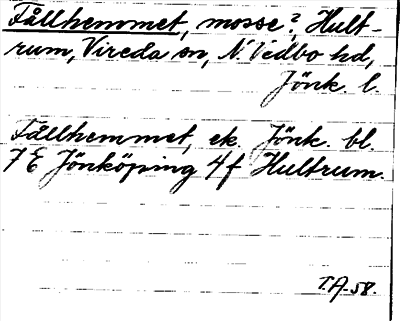 Fållhemmet, mosse?, Hult-
rum, Vireda sn, N. Vedbo hd,
Jönk. l.
Fållhemmet, ek. Jönk. bl.
7E Jönköping 4f Hultrum.
T.A-58.